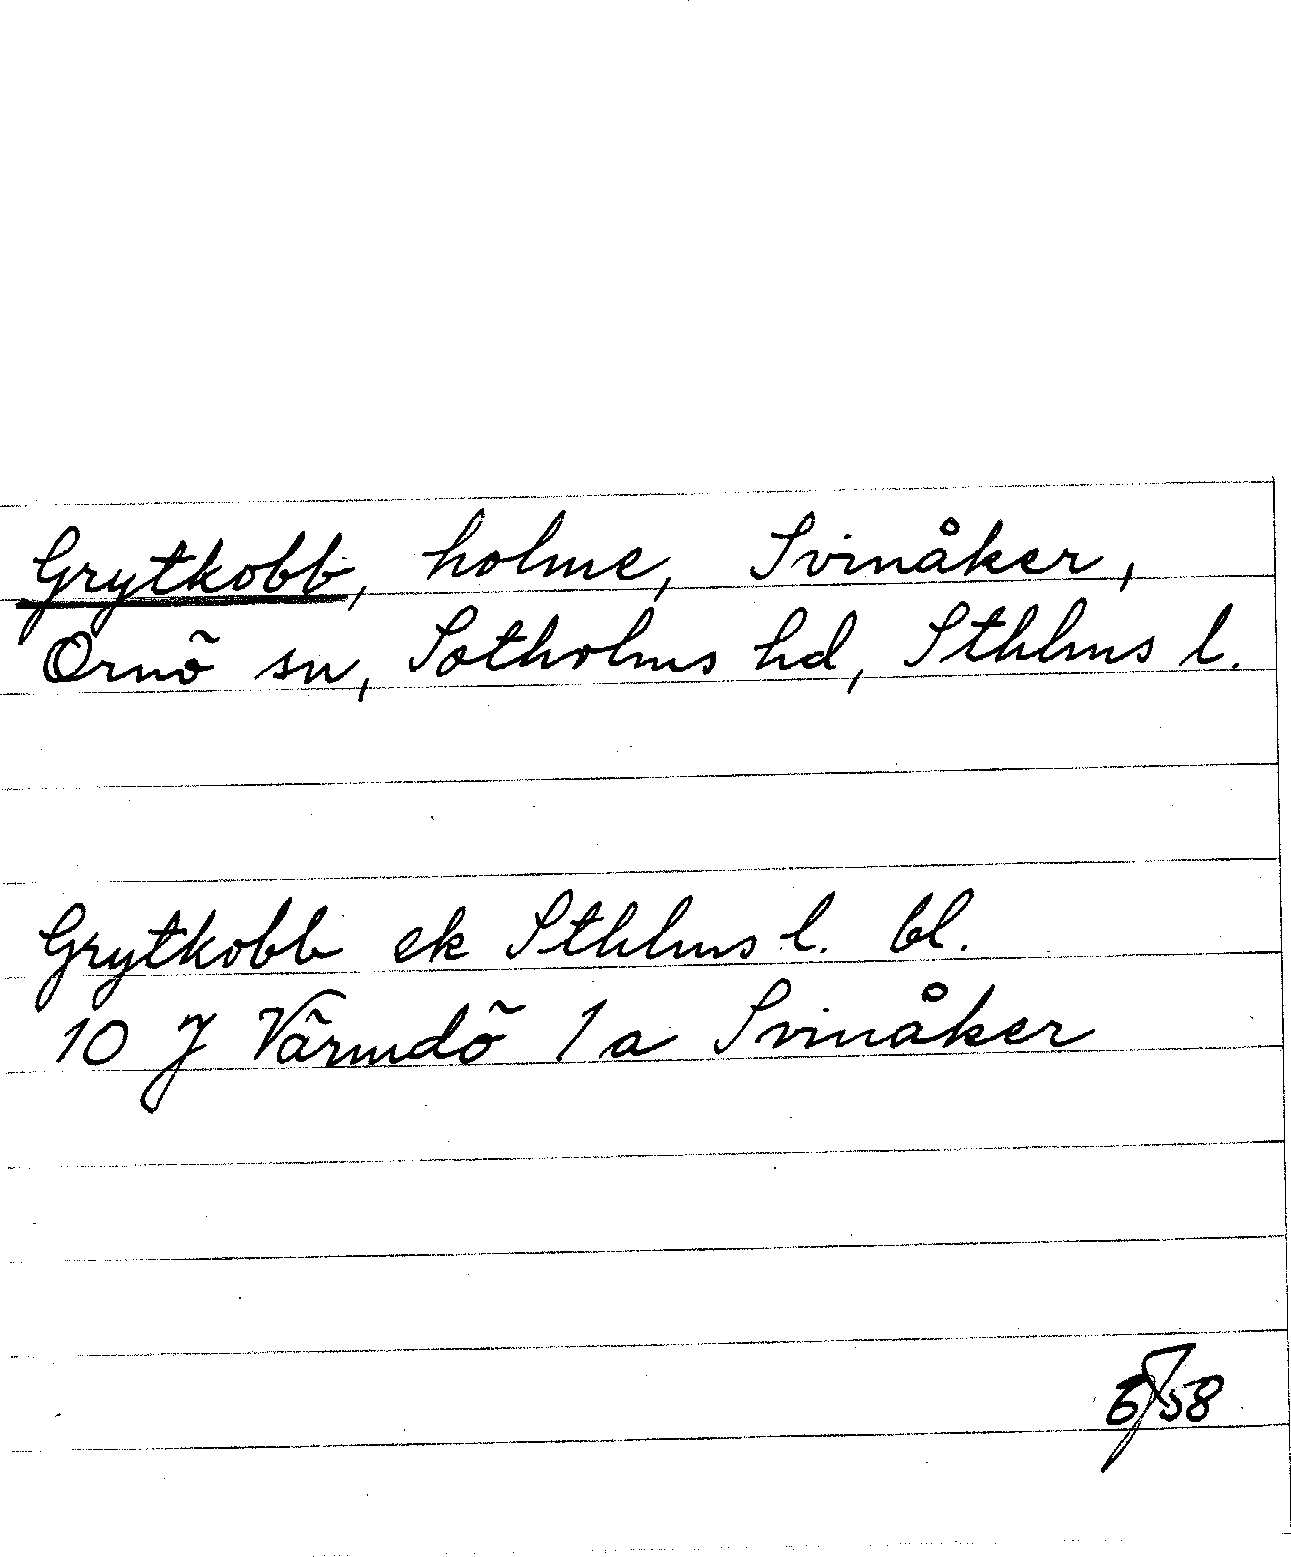 Grytkobb, holme, Svinåker,
Ornö sn, Sotholms hd, Sthlms l.
Grytkobb ek Sthlms l. bl.
10 J Värmdö 1 a Svinåker